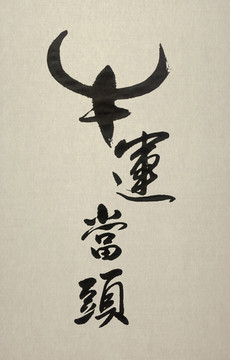 牛運當頭